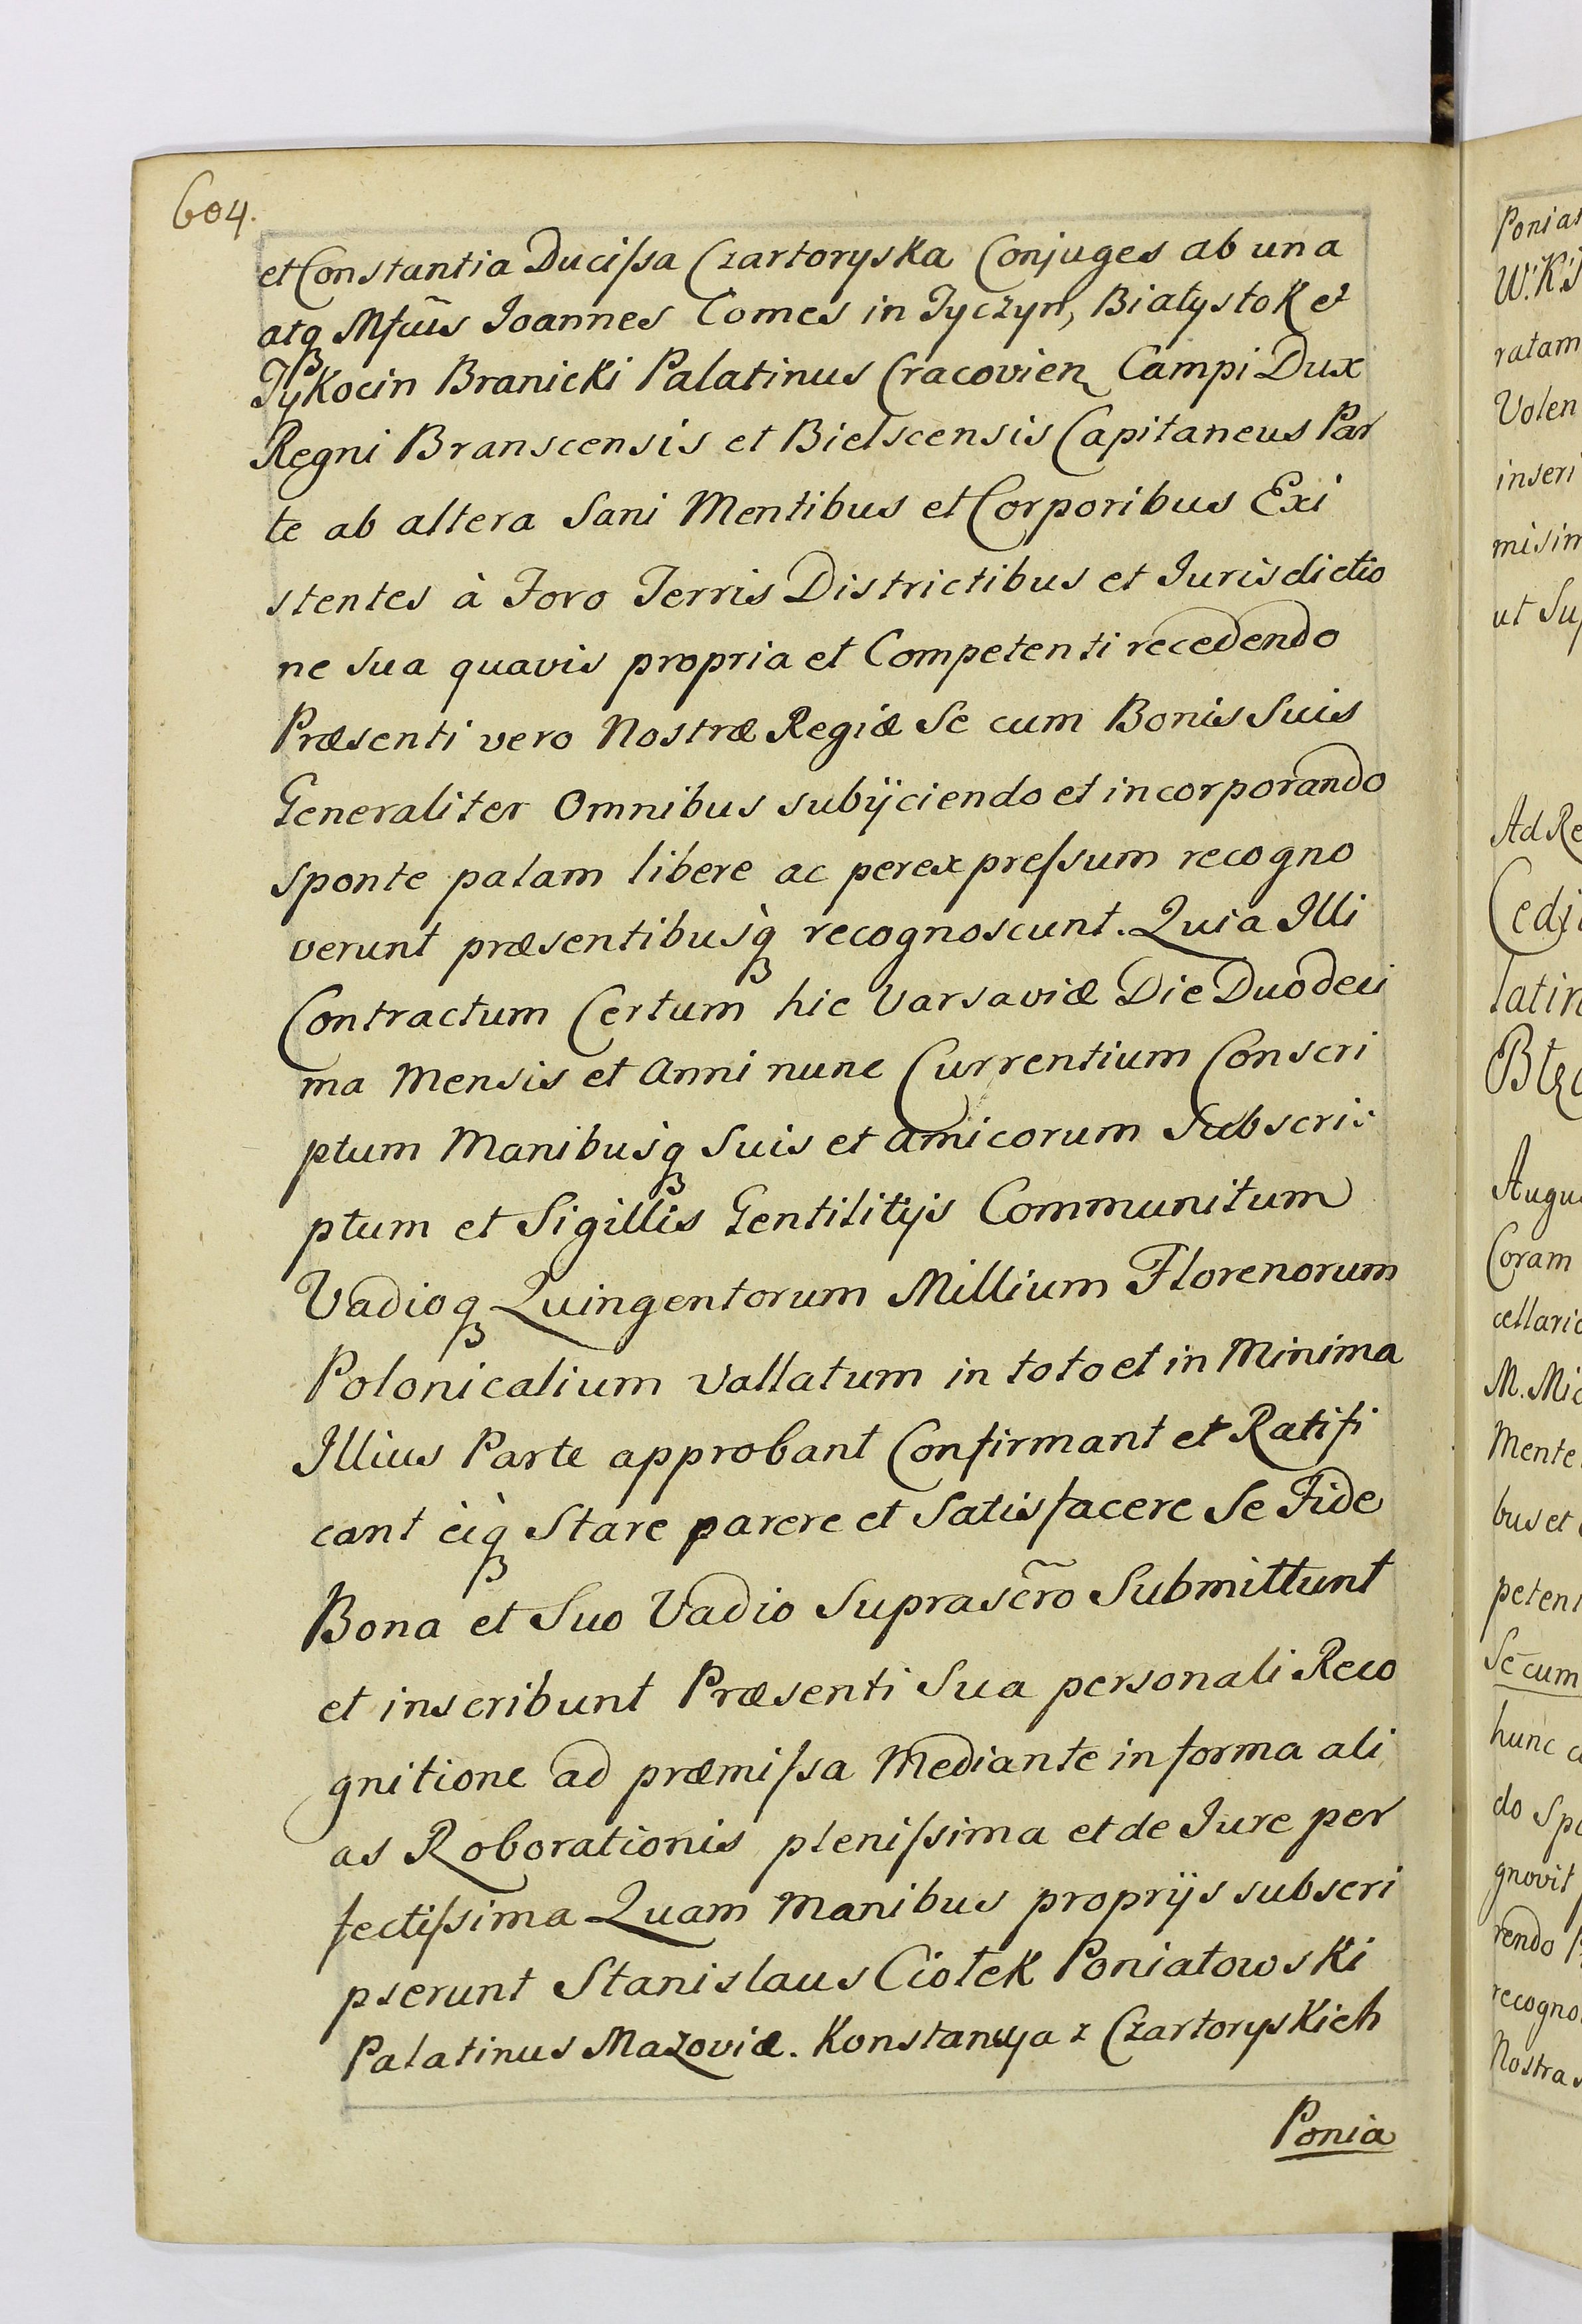 604.
et Constantia Ducissa Czartoryska Conjuges ab una
atq Mfcus Joannes Comes in Tyczyn, Białystok et
Tykocin Branicki Palatinus Cracovien Campi Dux
Regni Branscensis et Bielscensis Capitaneus Par
te ab altera Sani Mentibus et Corporibus Exi
stentes à Foro Terris Districtibus et Jurisdictio
ne sua quavis propria et Competenti recedendo
Præsenti vero Nostræ Regiæ Se cum Bonis Suis
Generaliter Omnibus subijciendo et incorporando
sponte palam libere ac perexpressum recogno
verunt præsentibusq recognoscunt. Quia Illi
Contractum Certum hic Varsaviæ Die Duodeci
ma Mensis et Anni nunc Currentium Conscri
ptum Manibusq Suis et Amicorum Subscri:
ptum et Sigillis Gentilitijs Communitum
Vadioq Quingentorum Millium Florenorum
Polonicalium vallatum in toto et in Minima
Illius Parte approbant Confirmant et Ratifi
cant èiq Stare parere et Satisfacere Se Fide
Bona et Suo Vadio Suprascro Submittunt
et inscribunt Præsenti Sua personali Reco
gnitione ad præmissa Mediante in forma ali
as Roborationis plenissima et de Jure per
fectissima Quam Manibus proprijs subscri
pserunt Stanislaus Ciołek Poniatowski
Palatinus Mazoviæ. Konstancya z Czartoryskich
Ponia
W.K.S
ratam
Volen
inseri
ut Sup
Ad Re
Cedi
latin
Augu
Coram
cellario
M. Mic
Mente
bus et
petent
Se cum
hunc
do Spo
gnovit
rendo
recogno
Nostra